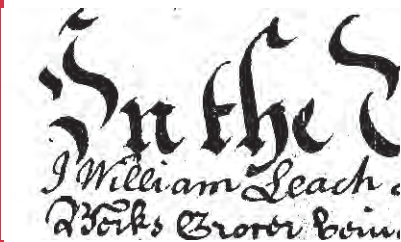 In the
I William Leach
Berks Grocer being